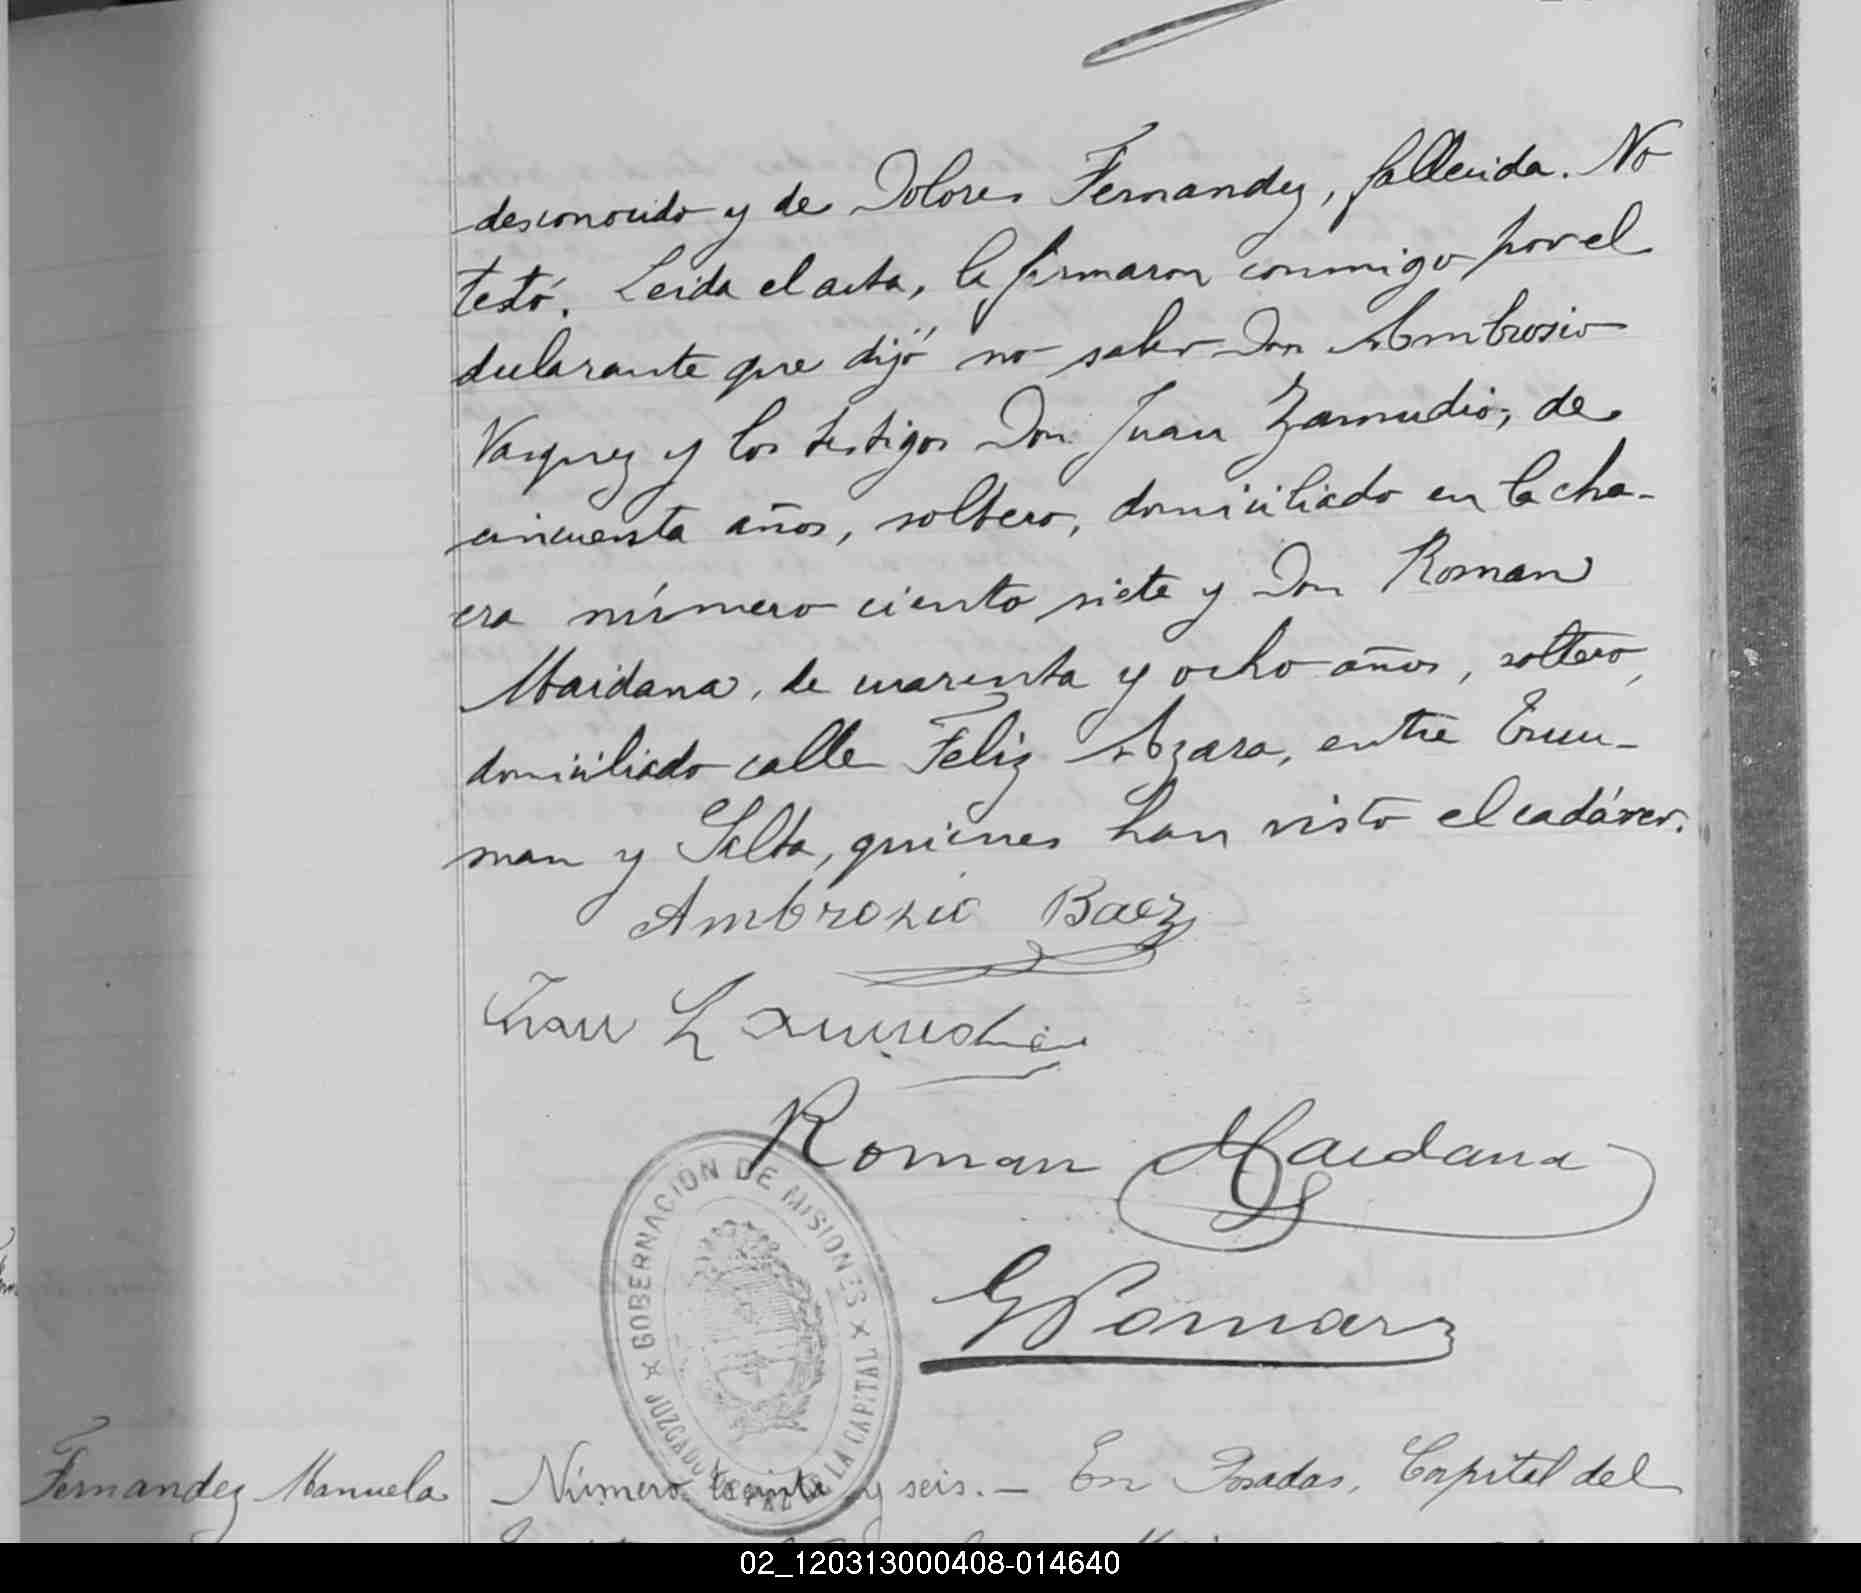 desconocido y de Dolores Fernandez, fallecida. No
testó. Leida el acta, la firmaron conmigo por el
declarante que dijó no saber Don Ambrosio
Vasquez y los testigos Don Juan Zamudio, de
cincuenta años, soltero, domiciliado en la cha-
cra número ciento siete y Don Roman
Maidana, de cuarenta y ocho años, soltero,
domiciliado calle Feliz Azara, entre Tucu-
man y Salta, quienes han visto el cadáver.
Ambrosio Baez
Juan Zamudio
Roman Maidana
G Pomar
GOBERNACION DE MISIONES
JUZGADO DE PAZ DE LA CAPITAL
Fernandez Manuela
Número treinta y seis. — En Posadas, Capital del
02_120313000408-014640